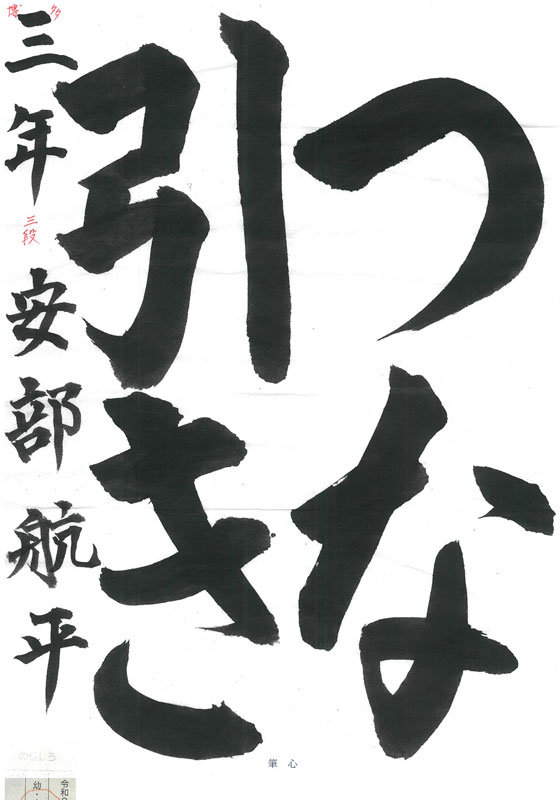 つな
引き
博多
三年 三段 安部航平
心筆
のりしろ
令和
幼・